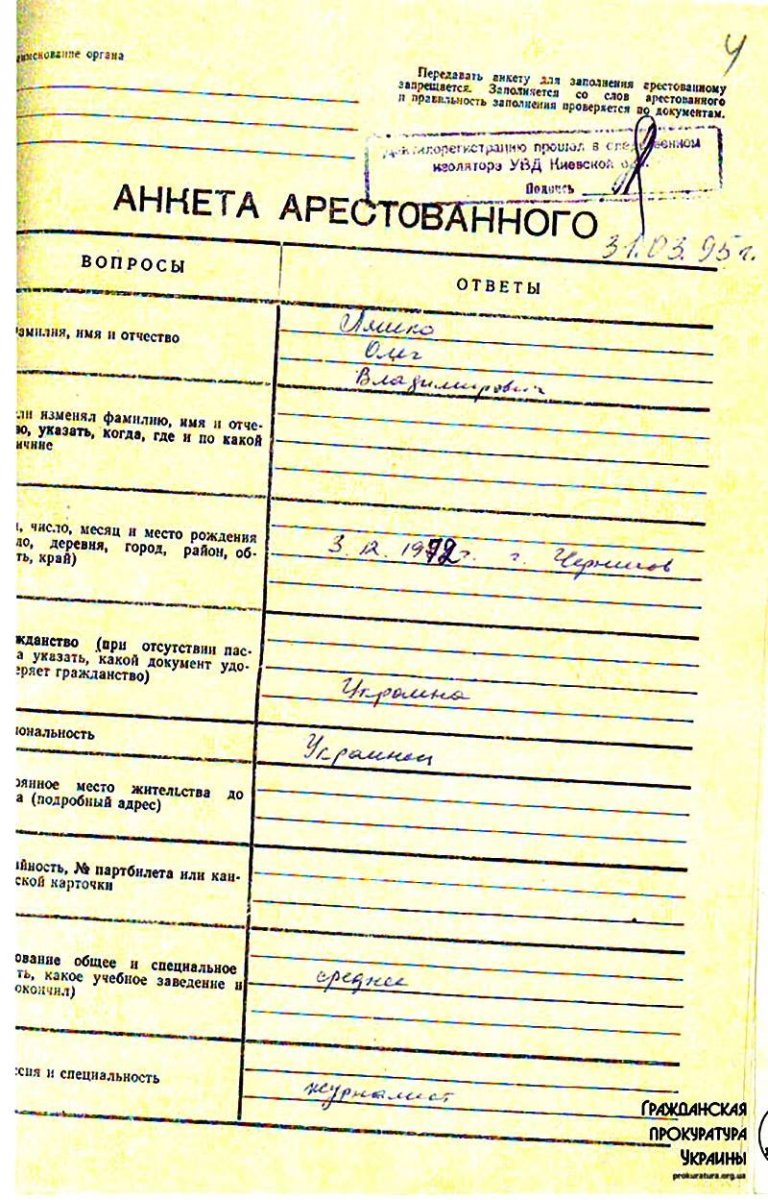 аименование органа
4
Передавать анкету для заполнения арестованному
запрещается. Заполняется со слов арестованного
и правильность заполнения проверяется по документам.
Дактилорегистрацию прошол в следственном
изоляторе УВД Киевской обл.
Подпись
АНКЕТА АРЕСТОВАННОГО
31.03.95г.
ВОПРОСЫ
ОТВЕТЫ
амилия, имя и отчество
Ляшко
Олег
Владимирович
ли изменял фамилию, имя и отче-
во, указать, когда, где и по какой
ичине
, число, месяц и место рождения
ло, деревня, город, район, об-
ть, край)
3. 12. 1972г. г. Чернигов
жданство (при отсутствии пас-
а указать, какой документ удо-
еряет гражданство)
Украина
иональность
Украинец
оянное место жительства до
а (подробный адрес)
ийность, № партбилета или кан-
ской карточки
ование общее и специальное
ть, какое учебное заведение и
окончил)
среднее
ссия и специальность
журналист
ГРАЖДАНСКАЯ
ПРОКУРАТУРА
УКРАИНЫ
prokuratura.org.ua